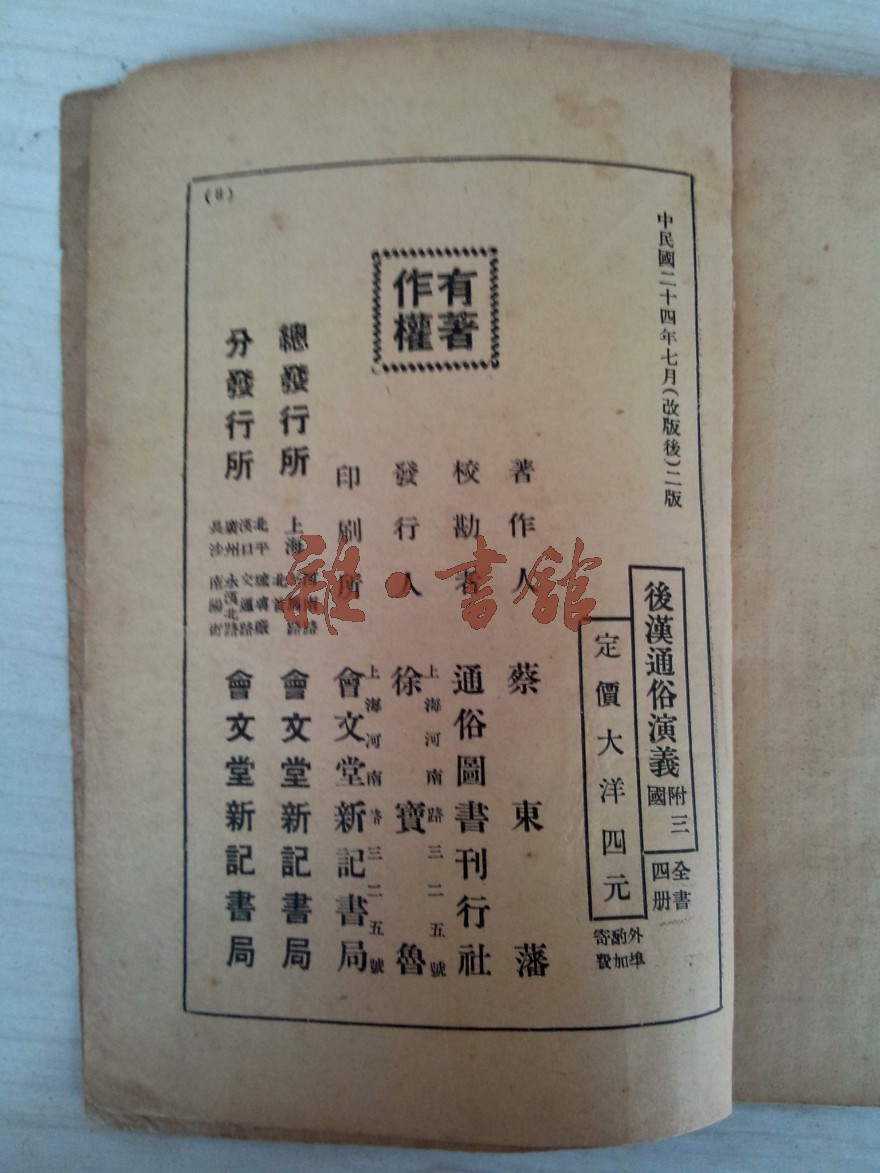 中民國二十四年七月(改版後)二版
後漢通俗演義
附三國
全書四册
定價大洋四元
外埠酌加寄費
著作人 蔡東藩
校勘者 通俗圖書刊行社
上海河南路三二五號
發行人 徐寶魯
上海河南路三二五號
印刷所 會文堂新記書局
有著作權
總發行所 上海 會文堂新記書局
分發行所
北平
漢口 交通路
廣州 永漢北路
長沙 南陽街
會文堂新記書局
(8)
雜·書館